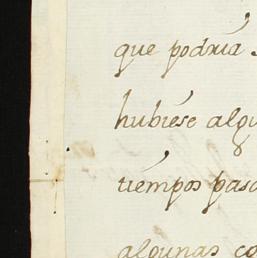 que podría
hubiése algu
tiémpos pasa
algunas co